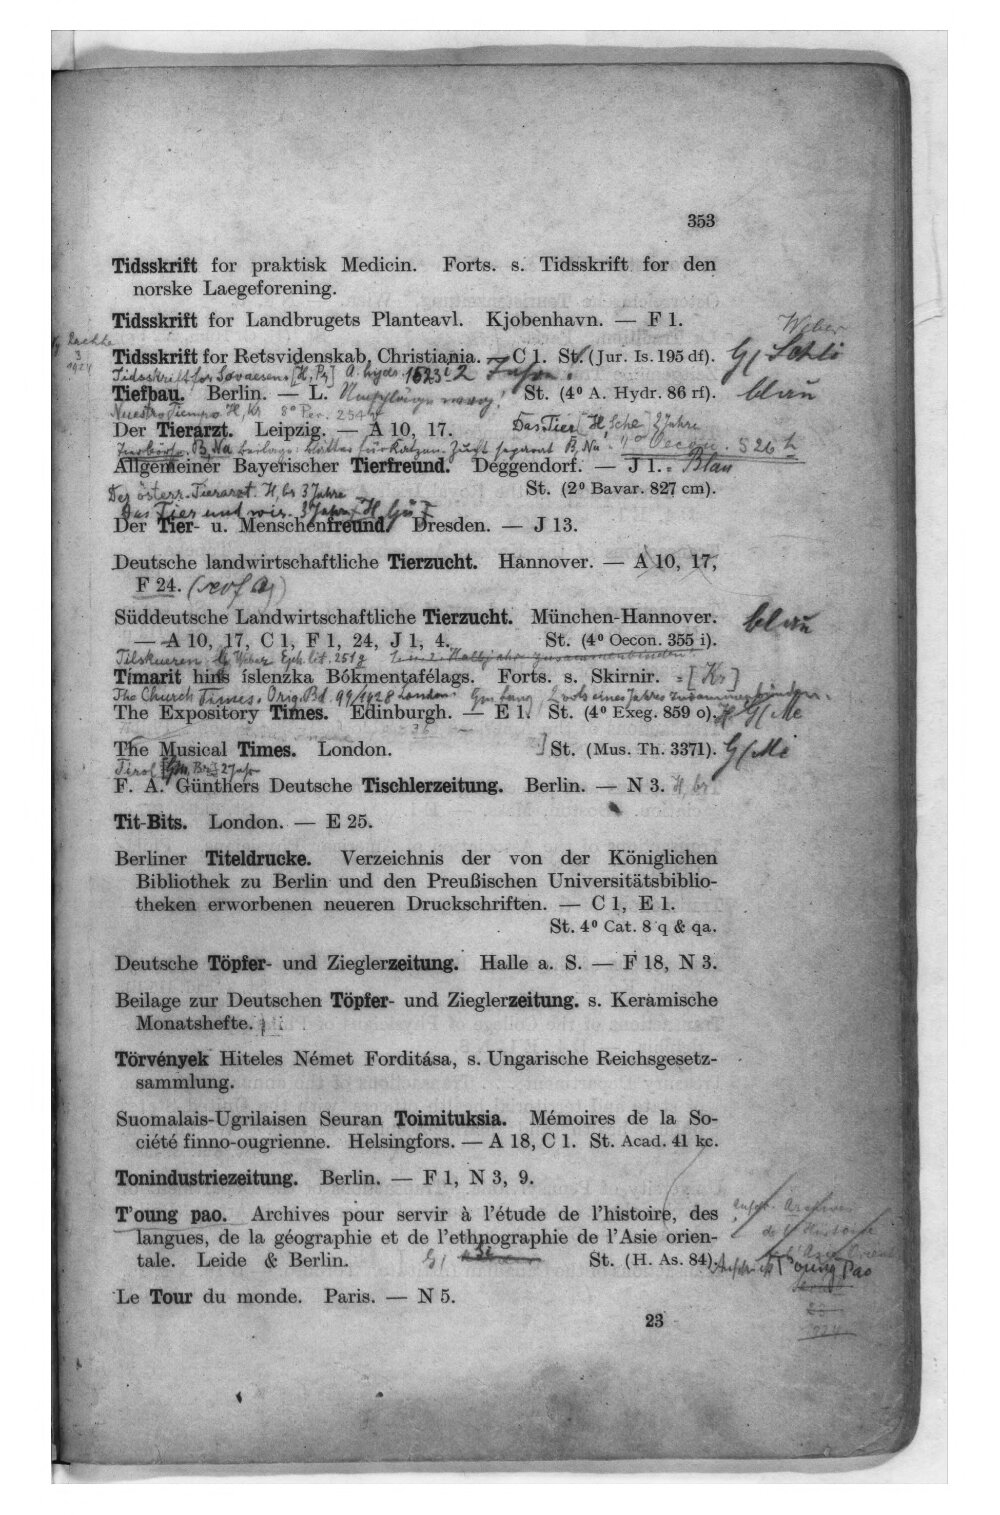 353
Tidsskrift for praktisk Medicin. Forts. s. Tidsskrift for den
norske Laegeforening.
Tidsskrift for Landbrugets Planteavl. Kjobenhavn. — F 1.
Weber
3
1924
Tidsskrift for Retsvidenskab, Christiania. — C 1. St. (Jur. Is. 195 df).
Tidsskrift for Sovaesen [H, Pz] A. hydr. 1623
Tiefbau. Berlin. — L. St. (4⁰ A. Hydr. 86 rf). blau
Nuestro Tiempo H, Kr 8⁰ Per. 254
Das Tier [H, Sche] 2 Jahre
Der Tierarzt. Leipzig. — A 10, 17.
B, Na
Allgemeiner Bayerischer Tierfreund. Deggendorf. — J 1. Blau
St. (2⁰ Bavar. 827 cm).
Der österr. Tierarzt. H, br 3 Jahre
Das Tier und wir. 3 Jahre
Der Tier- u. Menschenfreund. Dresden. — J 13.
Deutsche landwirtschaftliche Tierzucht. Hannover. — A 10, 17,
F 24.
Süddeutsche Landwirtschaftliche Tierzucht. München-Hannover. blau
— A 10, 17, C 1, F 1, 24, J 1, 4. St. (4⁰ Oecon. 355 i).
Tilskueren Eph. lit. 251 g
Tímarit hins íslenzka Bókmentafélags. Forts. s. Skirnir. = [Kr]
The Church Times. Orig. Bd. 99/1928 London 2 vols eines Jahres zusammenbinden.
The Expository Times. Edinburgh. — E 1. St. (4⁰ Exeg. 859 o).
The Musical Times. London. St. (Mus. Th. 3371).
Tirol
F. A. Günthers Deutsche Tischlerzeitung. Berlin. — N 3. H, br
Tit-Bits. London. — E 25.
Berliner Titeldrucke. Verzeichnis der von der Königlichen
Bibliothek zu Berlin und den Preußischen Universitätsbiblio-
theken erworbenen neueren Druckschriften. — C 1, E 1.
St. 4⁰ Cat. 8 q & qa.
Deutsche Töpfer- und Zieglerzeitung. Halle a. S. — F 18, N 3.
Beilage zur Deutschen Töpfer- und Zieglerzeitung. s. Keramische
Monatshefte.
Törvények Hiteles Német Forditása, s. Ungarische Reichsgesetz-
sammlung.
Suomalais-Ugrilaisen Seuran Toimituksia. Mémoires de la So-
ciété finno-ougrienne. Helsingfors. — A 18, C 1. St. Acad. 41 kc.
Tonindustriezeitung. Berlin. — F 1, N 3, 9.
T'oung pao. Archives pour servir à l'étude de l'histoire, des
langues, de la géographie et de l'ethnographie de l'Asie orien-
tale. Leide & Berlin. St. (H. As. 84).
T'oung Pao
Le Tour du monde. Paris. — N 5.
23